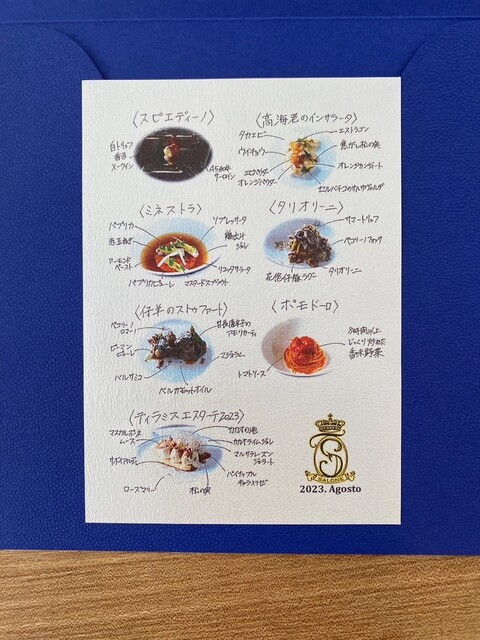 〈スピエディーノ〉
白トリュフ
香る
メークイン
A5和牛
サーロイン
〈高海老のインサラータ〉
タカエビー
ウイキョウ
エビパウダー
オレンジパウダー
エストラゴン
焦がし松の実
オレンジカンディート
セルバチコのサルサヴェルデ
〈ミネストラ〉
パプリカ
赤玉ねぎ
アーモンド
ペースト
パプリカピューレ
マスタードスプラウト
リブレッサータ
鶏出汁
ジュレ
リコッタサラータ
〈タリオリーニ〉
サマートリュフ
ペコリーノフォッサ
花悠仔豚ラグー
タリオリーニ
〈仔羊のストゥファート〉
ペコリーノ
ロマーノ
ピーマン
ピューレ
バルサミコ
ベルガモットオイル
甘長唐辛子の
アモリカーティ
マジョラム
〈ポモドーロ〉
トマトソース
8時間以上
じっくり炒めた
香味野菜
〈ティラミス エスターテ2023〉
マスカルポーネ
ムース
サボイアルディ
ローズマリー
松の実
カカオの泡
カカオライムジュレ
マルサラレーズン
ジェラート
パイナップル
キャラメリゼ
SALONE
2023. Agosto